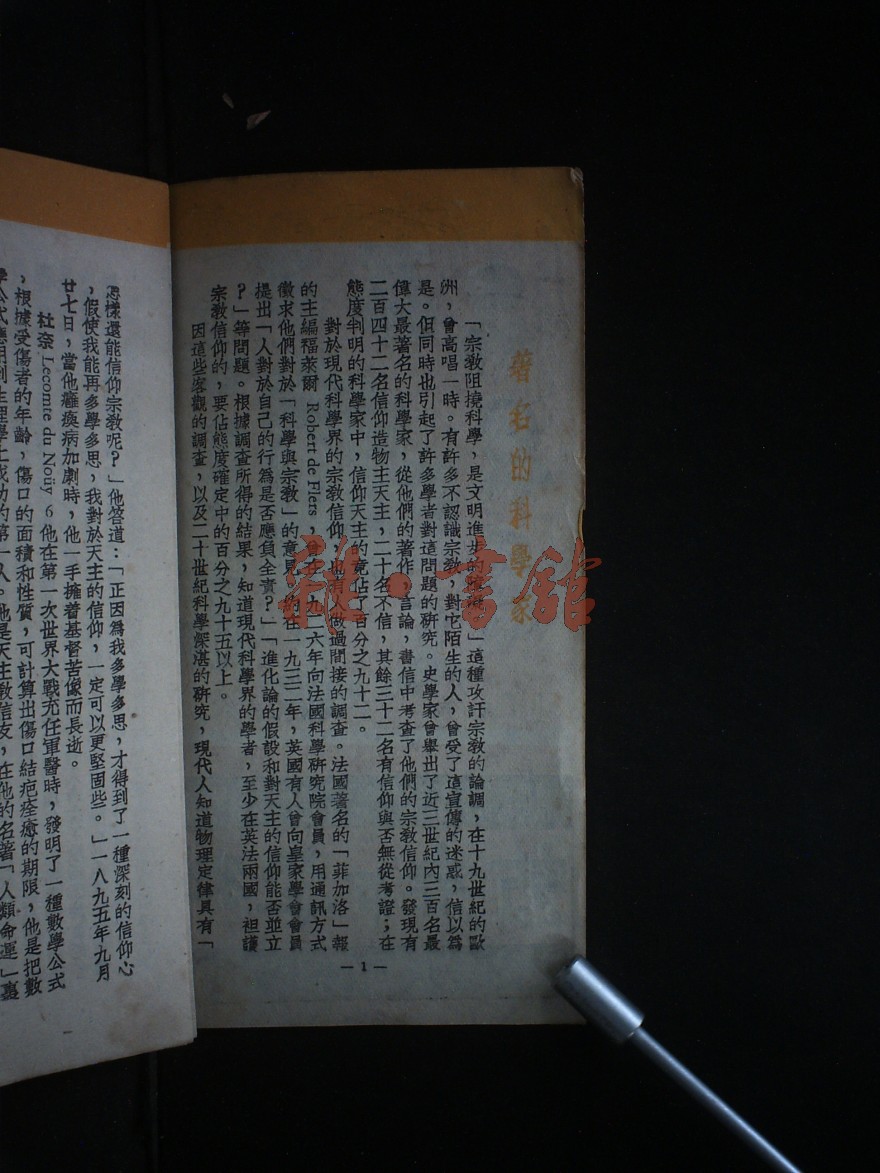 著名的科學家
「宗教阻撓科學，是文明進步的障礙」這種攻訐宗教的論調，在十九世紀的歐
洲，曾高唱一時。有許多不認識宗教，對它陌生的人，曾受了這宣傳的迷惑，信以爲
是。但同時也引起了許多學者對這問題的研究。史學家曾舉出了近三世紀內三百名最
偉大最著名的科學家，從他們的著作，言論，書信中考查了他們的宗教信仰。發現有
二百四十二名信仰造物主天主，二十名不信，其餘三十二名有信仰與否無從考證；在
態度判明的科學家中，信仰天主的竟佔了百分之九十二。
對於現代科學界的宗教信仰，也有人做過間接的調查。法國著名的「菲加洛」報
的主編福萊爾 Robert de Flers，曾在一九二六年向法國科學研究院會員，用通訊方式
徵求他們對於「科學與宗教」的意見。約在一九三二年，英國有人曾向皇家學會會員
提出「人對於自己的行為是否應負全責？」「進化論的假設和對天主的信仰能否並立
？」等問題。根據調查所得的結果，知道現代科學界的學者，至少在英法兩國，袒護
宗教信仰的，要佔態度確定中的百分之九十五以上。
因這些客觀的調查，以及二十世紀科學深湛的研究，現代人知道物理定律具有「
— 1 —
雜·書館
怎樣還能信仰宗教呢？」他答道：「正因爲我多學多思，才得到了一種深刻的信仰心
，假使我能再多學多思，我對於天主的信仰，一定可以更堅固些。」一八九五年九月
廿七日，當他癱瘓病加劇時，他一手擁着基督苦像而長逝。
杜奈 Lecomte du Noüy 6 他在第一次世界大戰充任軍醫時，發明了一種數學公式
，根據受傷者的年齡，傷口的面積和性質，可計算出傷口結疤痊癒的期限，他是把數
學公式應用到生理學上成功的第一人。他是天主教信友，在他的名著「人類命運」裏